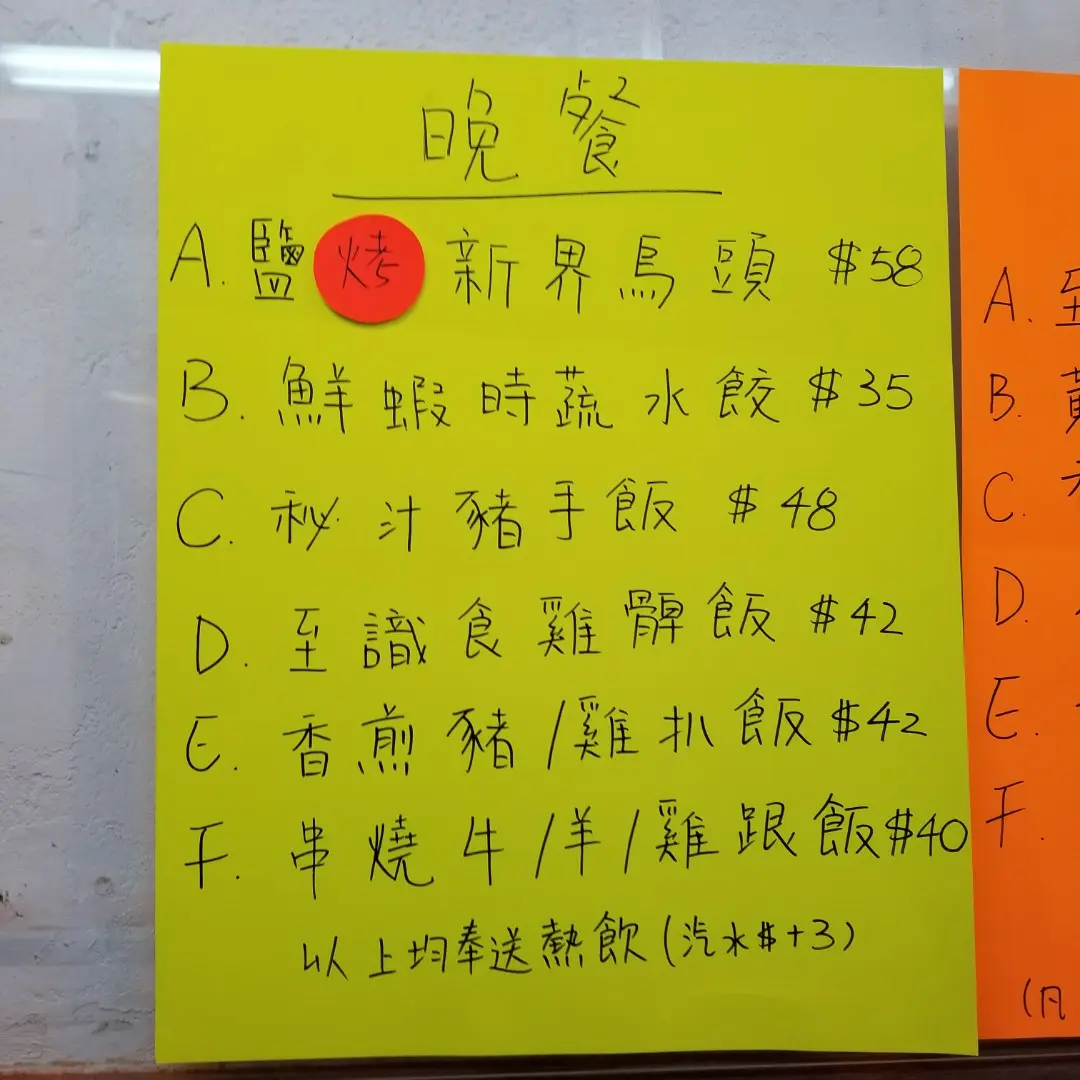 晚餐
A. 鹽烤新界烏頭 $58
B. 鮮蝦時蔬水餃 $35
C. 秘汁豬手飯 $48
D. 至識食雞髀飯 $42
E. 香煎豬/雞扒飯 $42
F. 串燒牛/羊/雞跟飯 $40
以上均奉送熱飲(汽水$+3)
A. 至
B. 黃
C.
D.
E.
F.